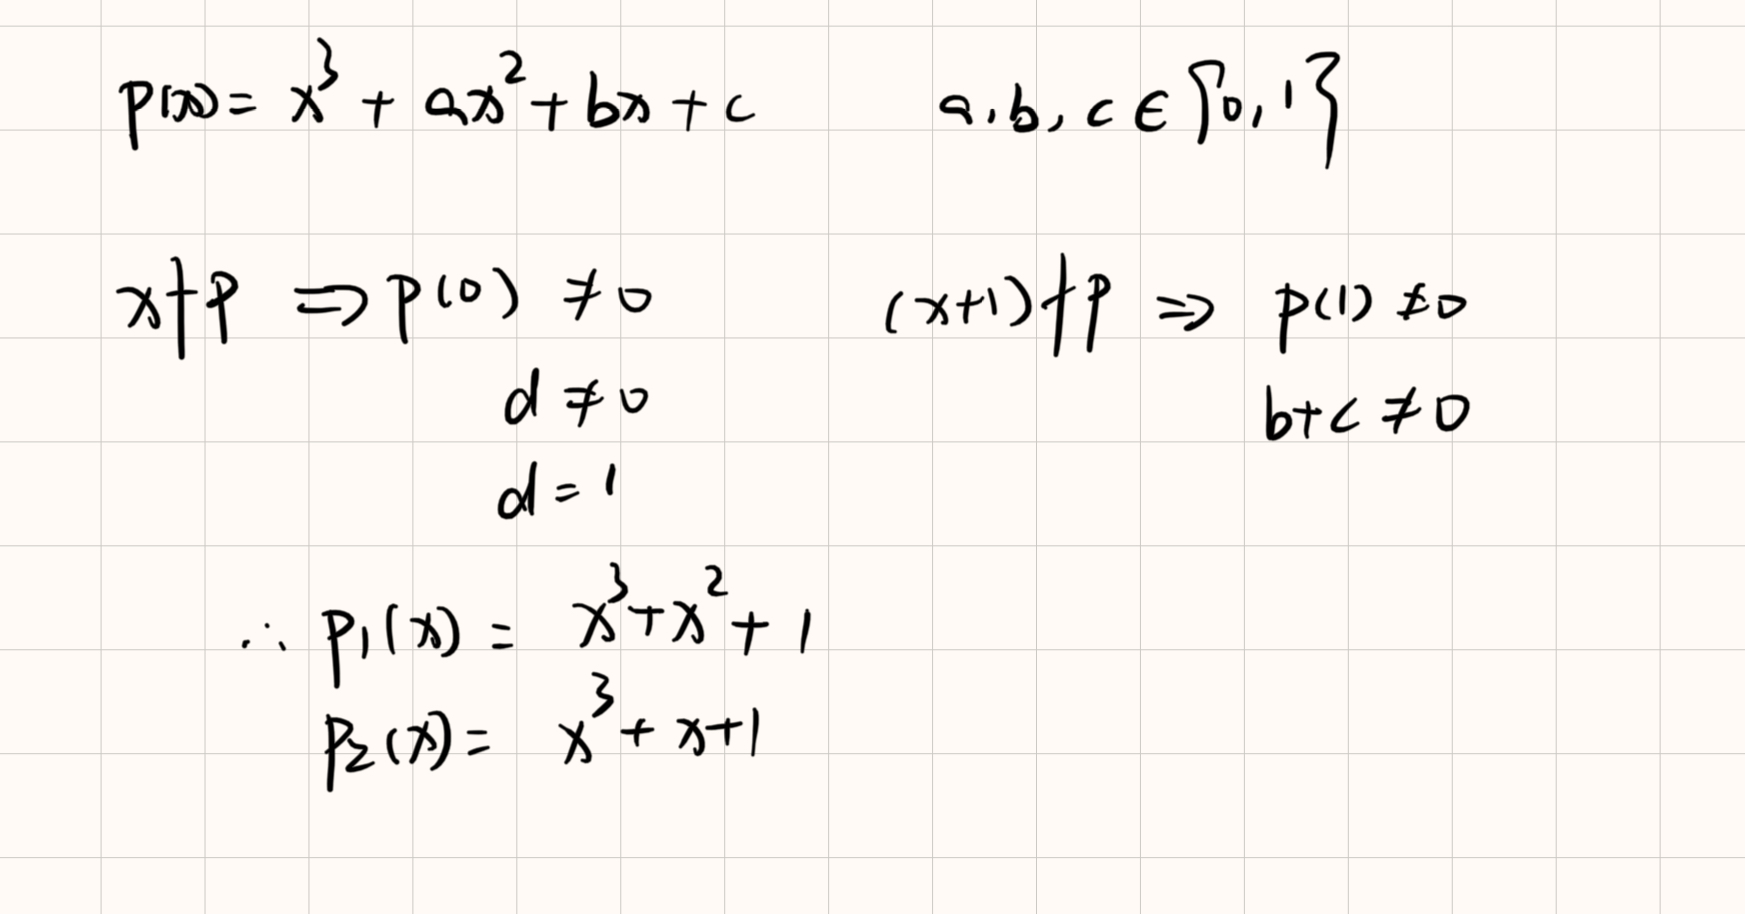 p(x) = x³ + ax² + bx + c a, b, c ∈ {0, 1}
x ∤ p ⇒ p(0) ≠ 0 (x+1) ∤ p ⇒ p(1) ≠ 0
d ≠ 0 b+c ≠ 0
d = 1
∴ p₁(x) = x³ + x² + 1
p₂(x) = x³ + x + 1